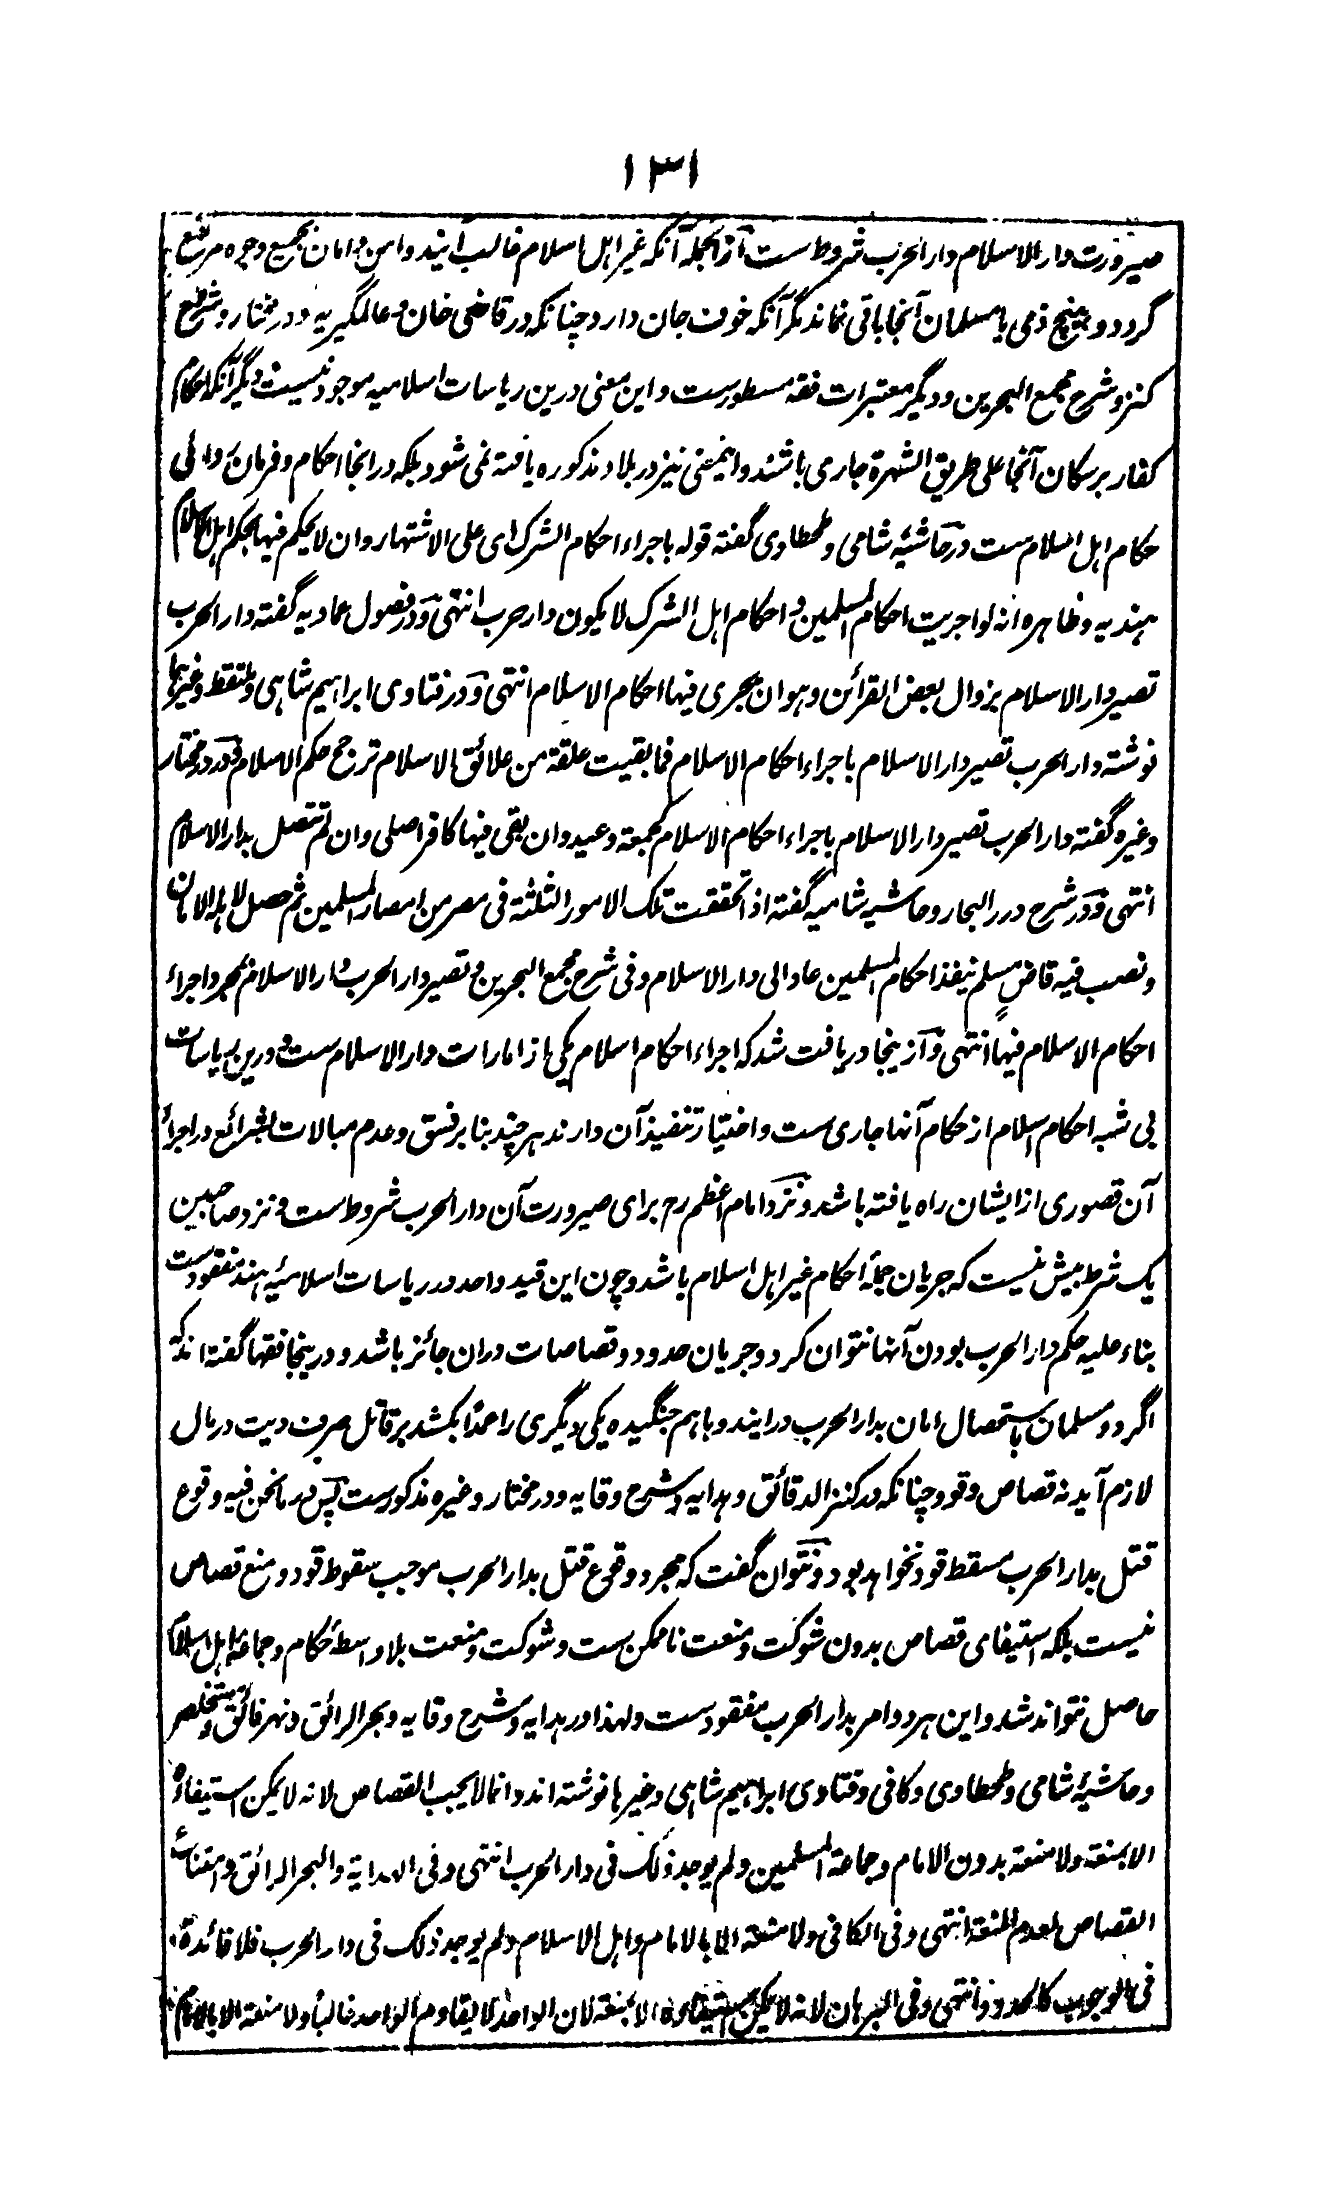 ۱۳۱
صیرورت دار الاسلام دار الحرب شروط ست ازانجمله آنکه غیر اہل اسلام غالب آیند و امن و امان بجمیع وجوه مرتفع
گردد و ہیچ ذمی یا مسلمان آنجا باقی نماند مگر آنکه خوف جان دارد چنانکه در قاضی خان و عالمگیریه و در مختار و شرح
کنز و شرح مجمع البحرین و دیگر معتبرات فقه مسطورست و این معنی درین ریاسات اسلامیه موجود نیست دیگر آنکه احکام
کفار بر سکان آنجا علی طریق الشهرة جاری باشند و اینمعنی نیز در بلاد مذکوره یافته نمی شود بلکه در انجا احکام و فرمان روائی
حکام اہل اسلام ست در حاشیۂ شامی و طحطاوی گفته قوله باجراء احکام الشرک ای علی الاشتهار و ان لا یحکم فیها بحکم اہل الاسلام
ہندیه و ظاہره انه لو اجریت احکام المسلمین و احکام اہل الشرک لا یکون دار حرب انتهی و در فصول عمادیه گفته دار الحرب
تصیر دار الاسلام بزوال بعض القرائن و ہو ان یجری فیها احکام الاسلام انتهی و در فتاوی ابراہیم شاہی و ملتقط و غیرہما
نوشته دار الحرب تصیر دار الاسلام باجراء احکام الاسلام فما بقیت علقة من علائق الاسلام ترجح حکم الاسلام و در در مختار
و غیره گفته دار الحرب تصیر دار الاسلام باجراء احکام الاسلام کجمعة و عید و ان بقی فیها کافر اصلی و ان لم تتصل بدار الاسلام
انتهی و در شرح درر البحار و حاشیه شامیه گفته اذا تحققت تلک الامور الثلثة فی مصر من امصار المسلمین ثم حصل لاہله الامان
و نصب فیه قاض مسلم ینفذ احکام المسلمین عاد الی دار الاسلام و فی شرح مجمع البحرین و تصیر دار الحرب دار الاسلام بمجرد اجراء
احکام الاسلام فیها انتهی و ازینجا دریافت شد که اجراء احکام اسلام یکی از امارات دار الاسلام ست و درین ریاسات
بی شبه احکام اسلام از حکام آنها جاری ست و اختیار تنفیذ آن دارند ہر چند بنا بر فسق و عدم مبالات بشرائع در اجراء
آن قصوری از ایشان راه یافته باشد و نزد امام اعظم رح برای صیرورت آن دار الحرب شروط ست و نزد صاحبین
یک شرط بیش نیست که جریان جملۂ احکام غیر اہل اسلام باشد و چون این قید واحد در ریاسات اسلامیۂ ہند مفقودست
بناء علیه حکم دار الحرب بودن آنها نتوان کرد و جریان حدود و قصاصات دران جائز باشد و درینجا فقها گفته اند که
اگر دو مسلمان باستحصال امان بدار الحرب در ایند و باہم جنگیده یکی دیگری را عمدا بکشد بر قاتل صرف دیت در مال
لازم آید نه قصاص و قود چنانکه در کنز الدقائق و ہدایه و شرح وقایه و در مختار و غیره مذکورست پس در ما نحن فیه وقوع
قتل بدار الحرب مسقط قود نخواہد بود و نتوان گفت که مجرد وقوع قتل بدار الحرب موجب سقوط قود و منع قصاص
نیست بلکه استیفای قصاص بدون شوکت و منعت ناممکن ست و شوکت و منعت بلا واسطۂ حکام و جماعۂ اہل اسلام
حاصل نتواند شد و این ہر دو امر بدار الحرب مفقودست و لهذا در ہدایه و شرح وقایه و بحر الرائق و نهر فائق و مستخلص
و حاشیۂ شامی و طحطاوی و کافی و فتاوی ابراہیم شاہی و غیرہا نوشته اند و انما لا یجب القصاص لانه لا یمکن استیفاؤه
الا بمنعة و لا منعة بدون الامام و جماعة المسلمین و لم یوجد ذلک فی دار الحرب انتهی و فی الهدایة و البحر الرائق و امتناع
القصاص لعدم المنعة انتهی و فی الکافی و لا منعة الا بالامام و اہل الاسلام و لم یوجد ذلک فی دار الحرب فلا فائدة
فی الوجوب کالحدود انتهی و فی البرہان لانه لا یمکن استیفاؤه الا بمنعة لان الواحد لا یقاوم الواحد غالبا و لا منعة الا بالامام